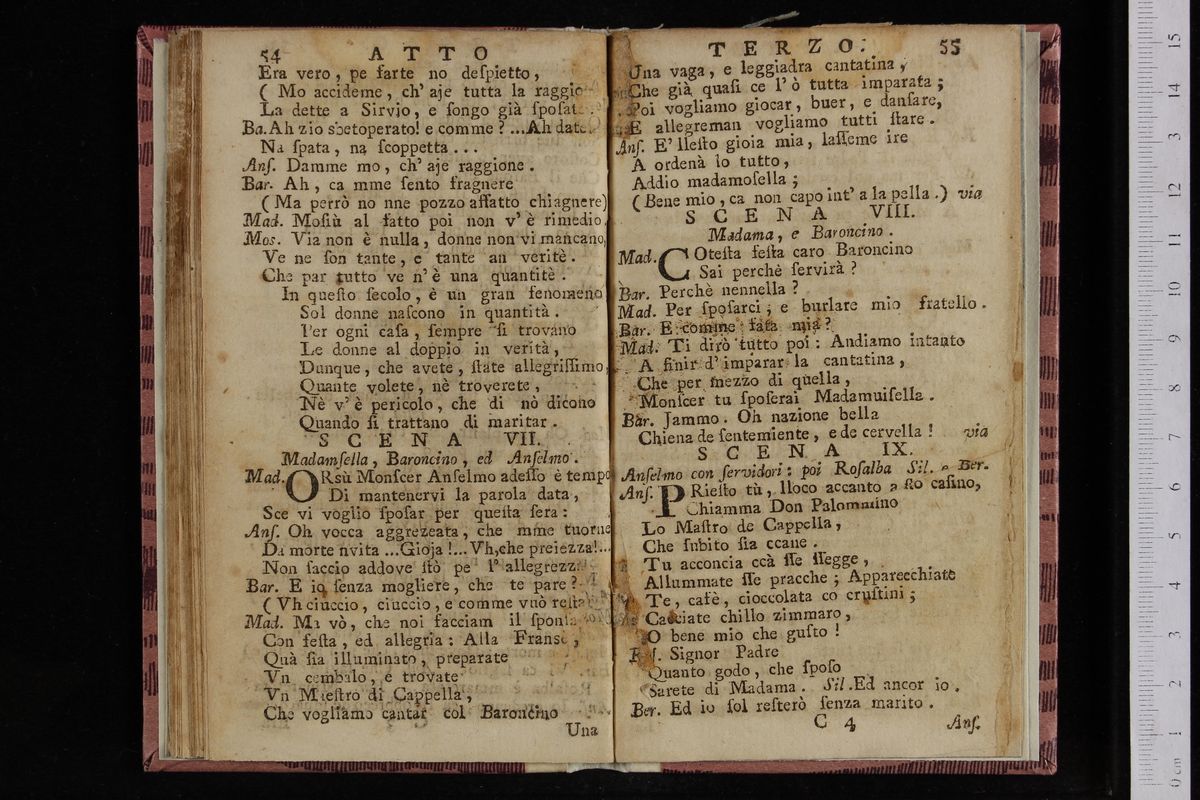 54 ATTO
Era vero, pe farte no deſpietto,
( Mo accideme, ch' aje tutta la raggio
La dette a Sirvio, e ſongo già ſpoſat
Ba. Ah zio sbetoperato! e comme ? ...Ah date
Na ſpata, na ſcoppetta...
Anſ. Damme mo, ch' aje raggione.
Bar. Ah, ca mme ſento fragnere
( Ma perrò no nne pozzo affatto chiagnere)
Mad. Moſiù al fatto poi non v' è rimedio,
Mos. Via non è nulla, donne non vi mancano,
Ve ne ſon tante, e tante an veritè.
Che par tutto ve n' è una quantitè.
In queſto ſecolo, è un gran fenomeno
Sol donne naſcono in quantità.
Per ogni caſa, ſempre ſi trovano
Le donne al doppio in verità,
Dunque, che avete, ſtate allegriſſimo,
Quante volete, nè troverete,
Nè v' è pericolo, che di nò dicono
Quando ſi trattano di maritar.
SCENA VII.
Madamſella, Baroncino, ed Anſelmo.
Mad. ORsù Monſcer Anſelmo adeſſo è tempo
Di mantenervi la parola data,
Sce vi voglio ſpoſar per queſta ſera:
Anſ. Oh vocca aggrezeata, che mme tuorne
Da morte nvita ...Gioja !... Vh, che preiezza!...
Non faccio addove ſtò pe l' allegrezz
Bar. E io ſenza mogliere, che te pare?
( Vh ciuccio, ciuccio, e comme vuò reſta
Mad. Ma vò, che noi facciam il ſponſa
Con feſta, ed allegria: Alla Franse,
Quà ſia illuminato, preparate
Vn cembalo, e trovate
Vn Maeſtro di Cappella,
Che vogliamo cantar col Baroncino
Una
TERZO. 55
Una vaga, e leggiadra cantatina,
Che già quaſi ce l' ò tutta imparata;
Poi vogliamo giocar, buer, e danſare,
E allegreman vogliamo tutti ſtare.
Anſ. E' lleſto gioia mia, laſſeme ire
A ordenà lo tutto,
Addio madamoſella;
( Bene mio, ca non capo int' a la pella.) via
SCENA VIII.
Madama, e Baroncino.
Mad. COteſta feſta caro Baroncino
Sai perchè ſervirà?
Bar. Perchè nennella?
Mad. Per ſpoſarci; e burlare mio fratello.
Bar. E comme fata mia?
Mad. Ti dirò tutto poi: Andiamo intanto
A finir d' imparar la cantatina,
Che per mezzo di quella,
Monſcer tu ſpoſerai Madamuiſella.
Bar. Jammo. Oh nazione bella
Chiena de ſentemiente, e de cervella! via
SCENA IX.
Anſelmo con ſervidori: poi Roſalba Sil. e Ber.
Anſ. PRieſto tù, lloco accanto a ſto caſino,
Chiamma Don Palommino
Lo Maſtro de Cappella,
Che ſubito ſia ccane.
Tu acconcia ccà ſſe ſſegge,
Allummate ſſe pracche; Apparecchiate
Te, cafè, cioccolata co cruſtini;
Cacciate chillo zimmaro,
O bene mio che guſto!
Signor Padre
Quanto godo, che ſpoſo
Sarete di Madama. Sil. Ed ancor io.
Ber. Ed io ſol reſterò ſenza marito.
C 4 Anſ.